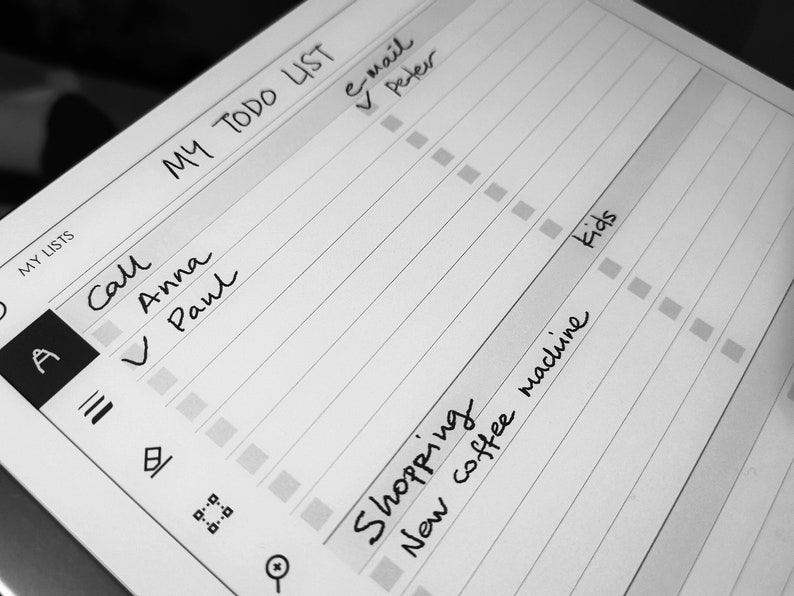 MY LISTS
MY TODO LIST
A
Call
Anna
✓ Paul
e-mail
✓ Peter
Shopping
New coffee machine
kids